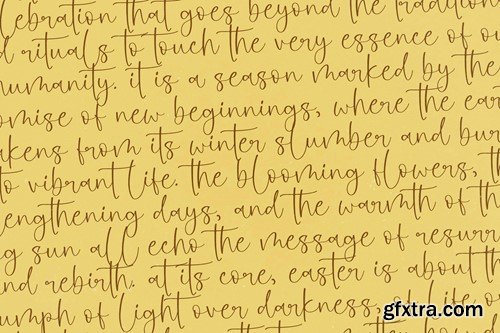 lebration that goes beyond the tradition
d rituals to touch the very essence of ou
humanity. it is a season marked by the
omise of new beginnings, where the ear
akens from its winter slumber and bur
to vibrant life. the blooming flowers, t
engthening days, and the warmth of th
g sun all echo the message of resurr
and rebirth. at its core, easter is about th
umph of light over darkness, of life o
gfxtra.com